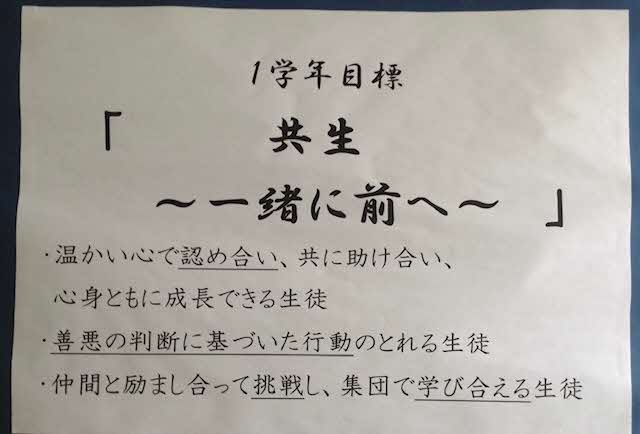 1学年目標
「 共生
～一緒に前へ～ 」
・温かい心で認め合い、共に助け合い、
心身ともに成長できる生徒
・善悪の判断に基づいた行動のとれる生徒
・仲間と励まし合って挑戦し、集団で学び合える生徒